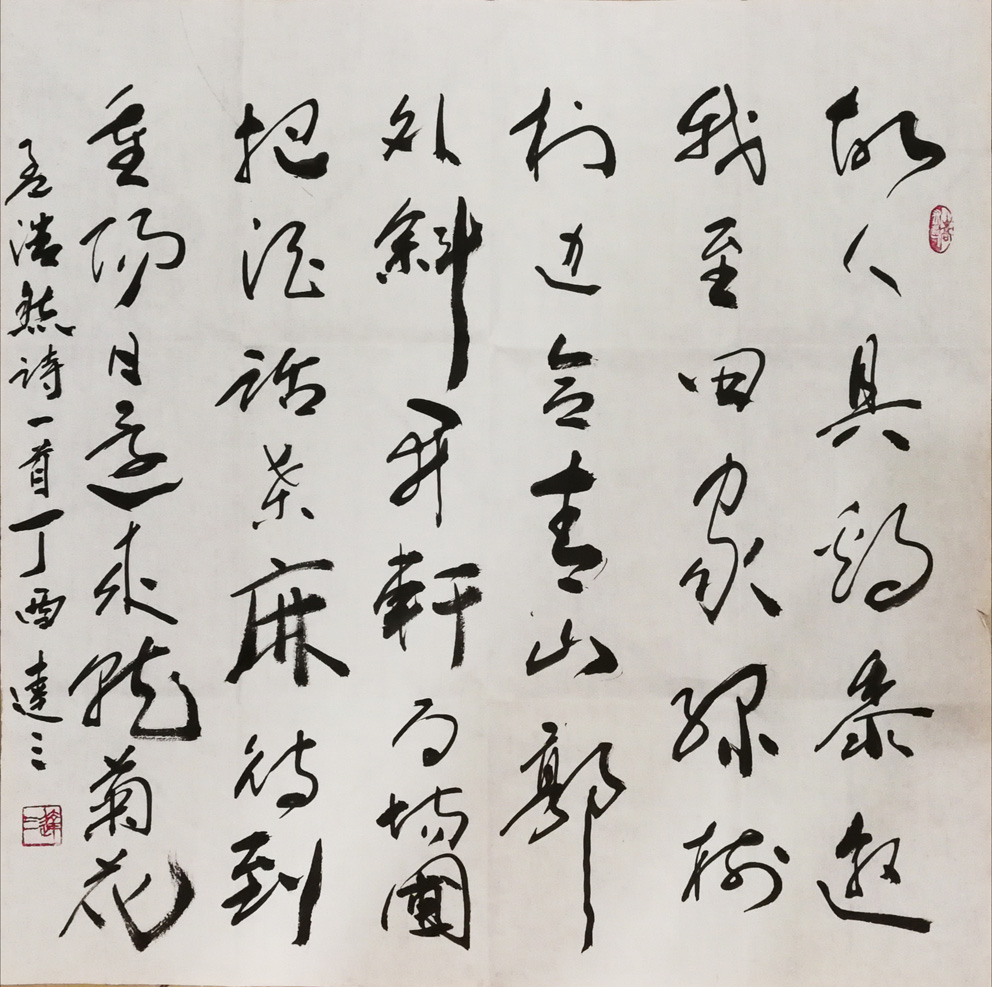 故人具鸡黍邀
我至田家绿树
村边合青山郭
外斜开軒面场圃
把酒话桑麻待到
重阳日还来就菊花
孟浩然诗一首丁酉達三
達三